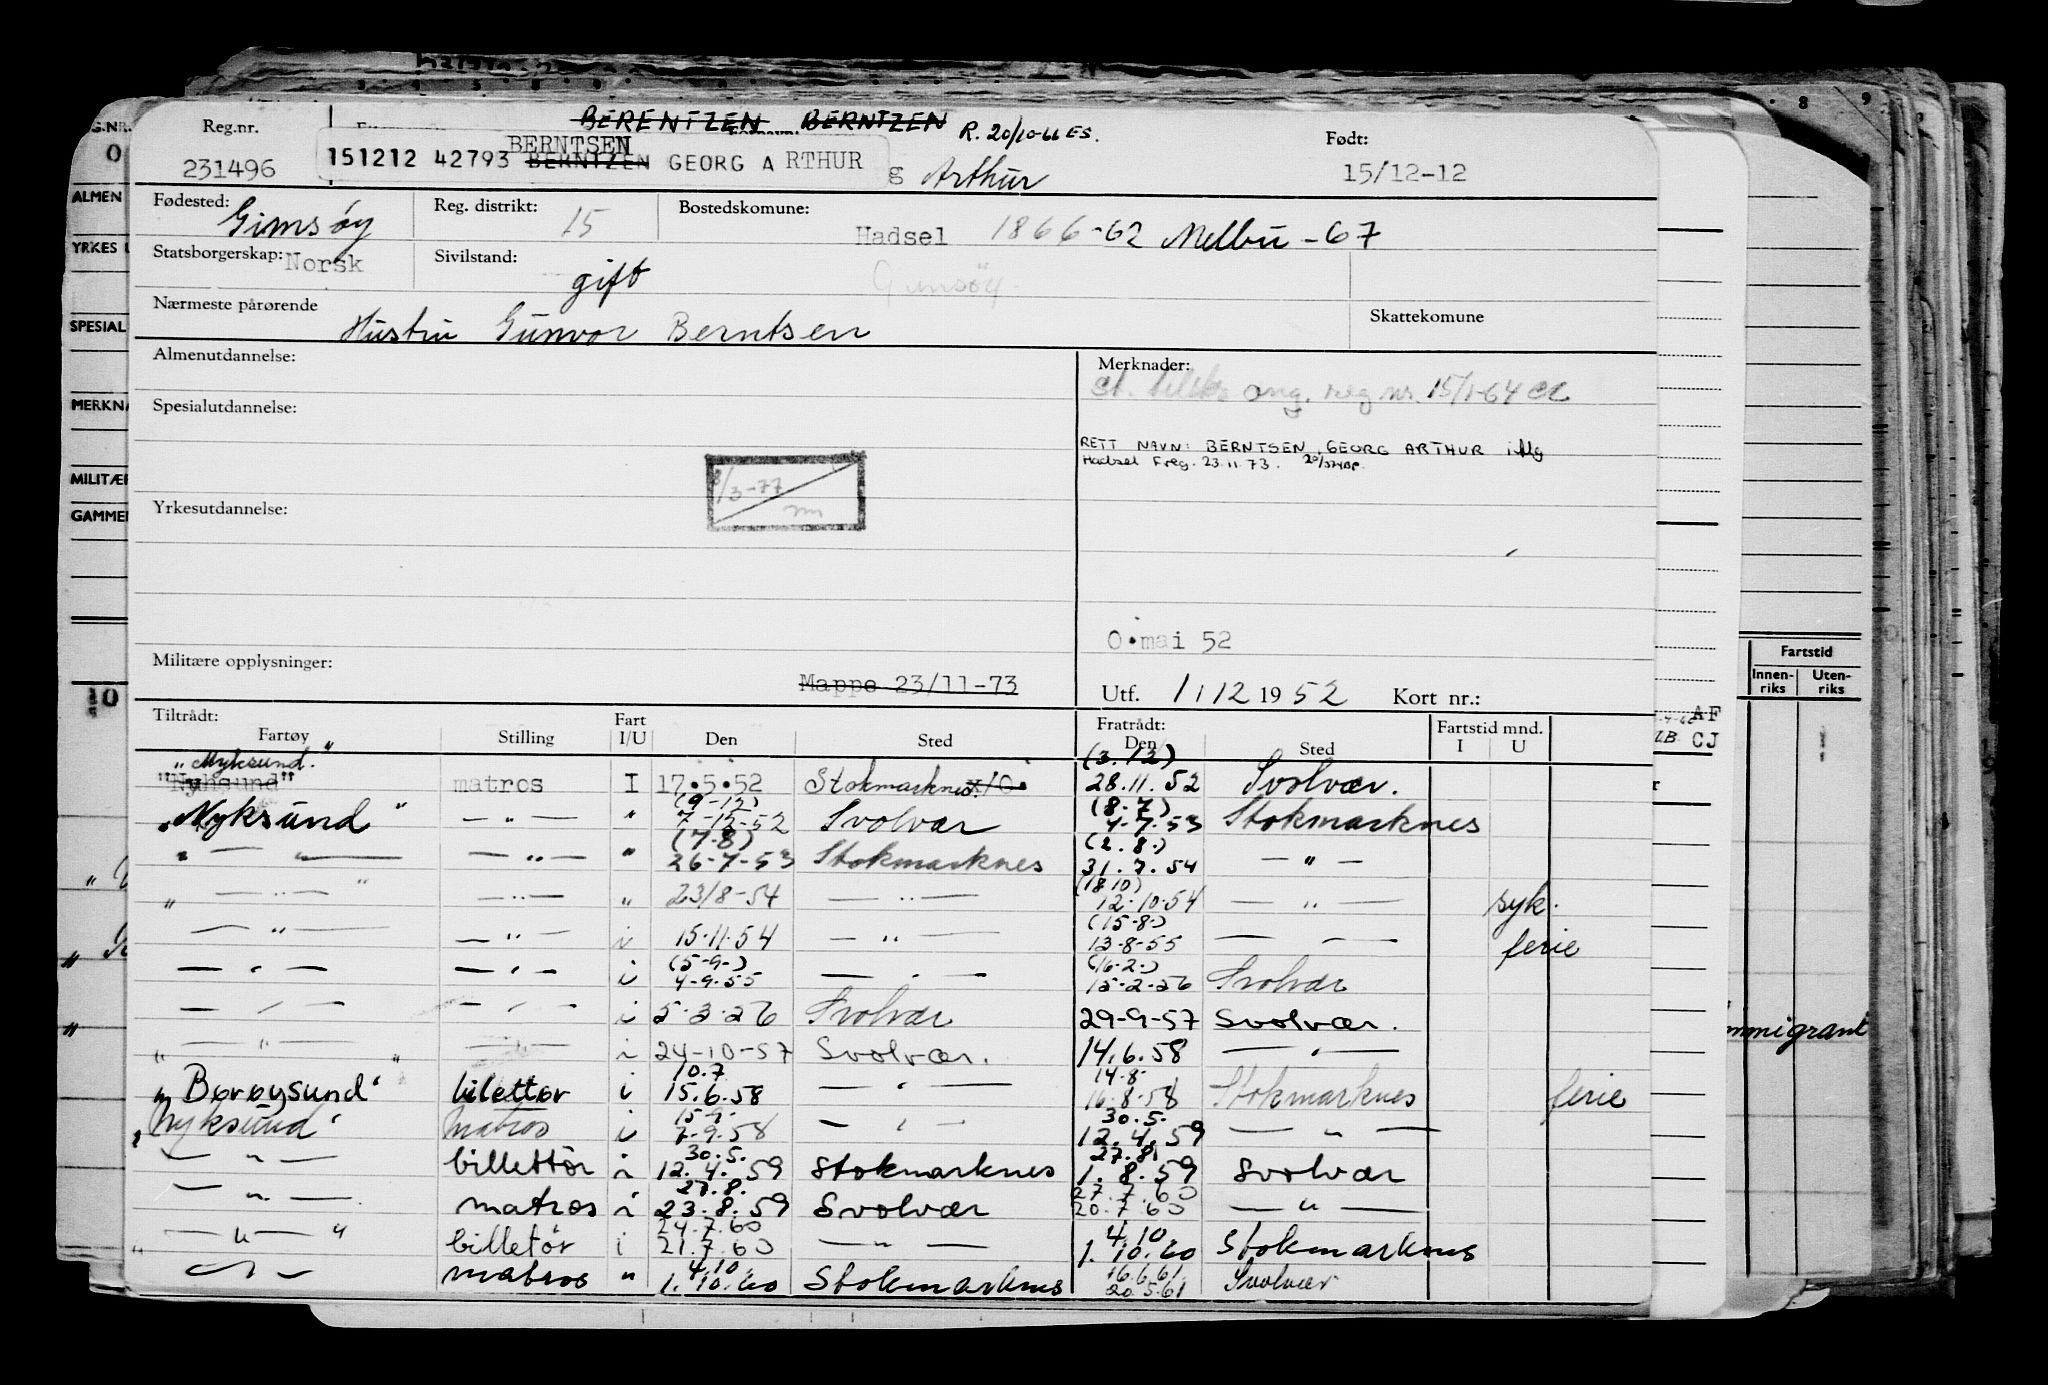 BERENTZEN BERNTZEN R. 20/10-66 ES.
Reg.nr. Født:
BERNTSEN
231496 151212 42793 BERNTZEN GEORG ARTHUR g Arthur 15/12-12
Fødested: Gimsøy Reg. distrikt: 15 Bostedskomune: Hadsel 1866-62 Melbu-67
Statsborgerskap: Norsk Sivilstand: gift Gimsöy
Nærmeste pårørende Hustru Gunvor Berntsen Skattekomune
Almenutdannelse: Merknader:
ang. reg nr. 15/1-64
Spesialutdannelse:
RETT NAVN: BERNTSEN, GEORG ARTHUR
Hadsel Freg. 23.11.73.
8/3-77
Yrkesutdannelse:
O.mai 52
Militære opplysninger: Mappe 23/11-73
Utf. 1/12 1952 Kort nr.:
Tiltrådt: Fart Fratrådt: Fartstid mnd.
Fartøy Stilling I/U Den Sted Den Sted I U
"Myksund." (3.12)
"Nyksund" matros I 17.5.52 Stokmarknes x/O. 28.11.52 Svolvær.
(9-12) (8-7)
"Nyksund" — " — " 7-12-52 Svolvær 4-7-53 Stokmarknes
(7-8) (2.8.)
" — " — — " — " 26-7-53 Stokmarknes 31.7.54 — " —
(18 10)
" — " — " — " — " 23/8-54 — " — 12.10.54 — " — syk.
(15-8-)
— " — — " — i 15.11.54 — " — 13-8-55 — — ferie
(5-9-) (16-2-)
— " — — " — i 4-9-55 — " — 15-2-56 Svolvær
— " — — " — i 5-3-56 Svolvær 29-9-57 Svolvær.
" — " — " — " — i 24-10-57 Svolvær. 14.6.58 — " —
10.7 14-8-
"Børøysund" bilettør i 15.6.58 — " — 16-8-58 Stokmarknes ferie
15-9- 30.5.
"Nyksund" Matros i 7-9-58 — " — 12.4.59 — " —
30.5. 27.8.
— " — billettør i 12.4.59 Stokmarknes 1.8.59 Svolvær
27.8. 27.7.60
— " — matros i 23.8.59 Svolvær 20.7.60 — " —
24.7.60 4.10.
" — " — " billetør i 21.7.60 — " — 1.10.60 Stokmarknes
4.10. 16.6.61
— " — matros " 1.10.60 Stokmarknes 20.5.61 Svolvær
G.NR.
0
ALMEN
YRKES U
SPESIAL
MERKNA
MILITÆR
GAMMEL
10
8 9
AF
CJ
Fartstid
Innen-riks Uten-riks
mmigrant